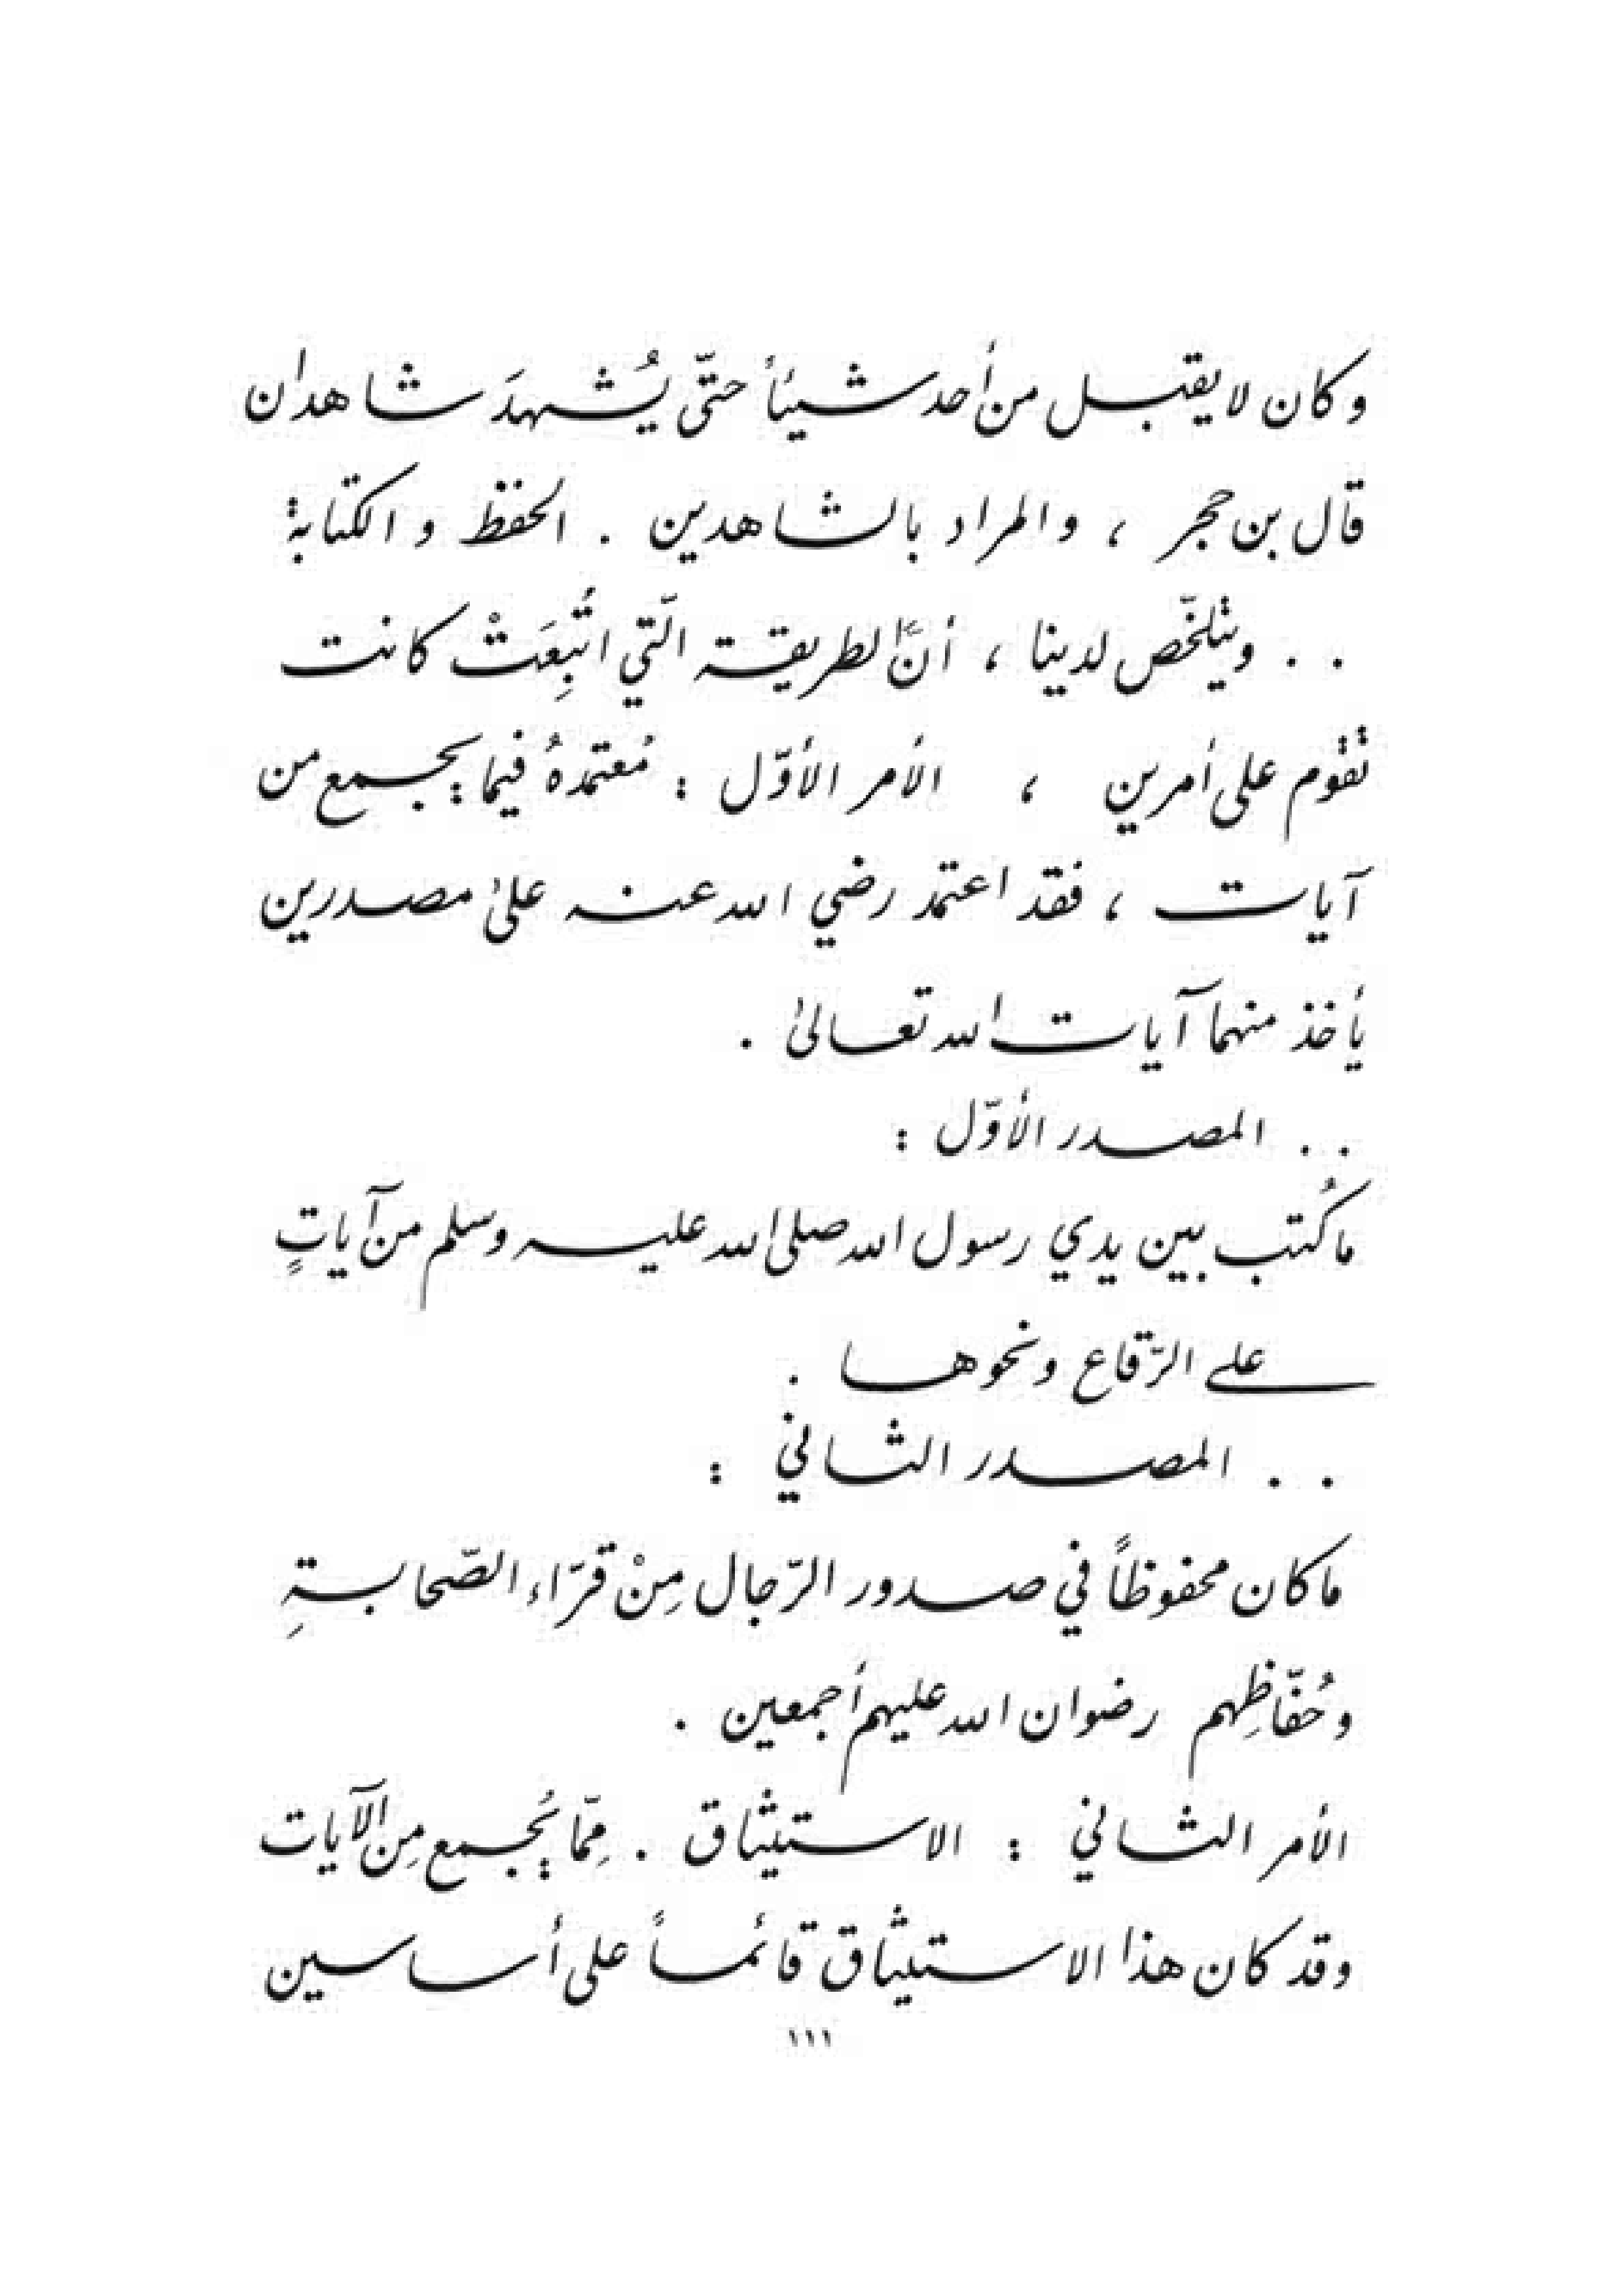 وكان لا يقبل من أحد شيئاً حتّى يُشهدَ شاهدان
قال بن حجر ، والمراد بالشاهدين . الحفظ والكتابة
. . ويتلخّص لدينا ، أنَّ الطريقة الّتي اتُّبِعَتْ كانت
تقوم على أمرين ، الأمر الأوّل : مُعتمدهُ فيما يجمع من
آيات ، فقد اعتمد رضي الله عنه على مصدرين
يأخذ منهما آيات الله تعالى .
. . المصدر الأوّل :
ما كُتب بين يدي رسول الله صلى الله عليه وسلم من آياتٍ
على الرّقاع ونحوها .
. . المصدر الثاني :
ما كان محفوظاً في صدور الرّجال مِنْ قرّاء الصّحابةِ
وحُفّاظِهم رضوان الله عليهم أجمعين .
الأمر الثاني : الاستيثاق . مِمّا يُجمع مِن الآيات
وقد كان هذا الاستيثاق قائماً على أساسين
١١١